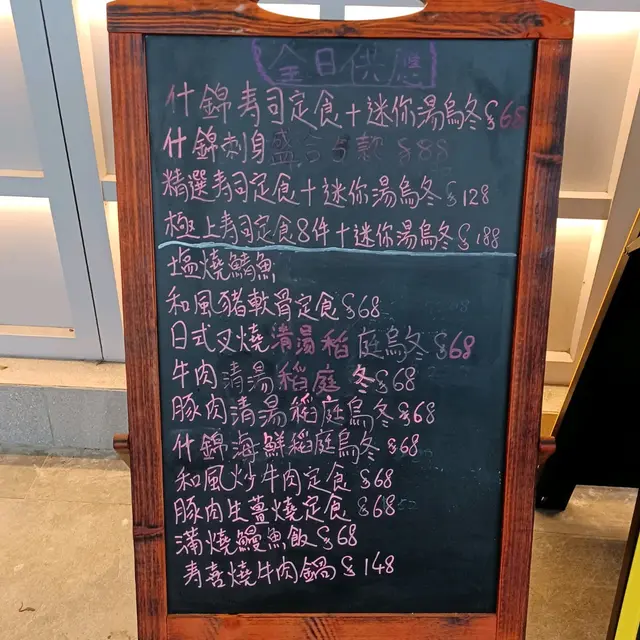 全日供應
什錦寿司定食+迷你湯烏冬$68
什錦刺身盛合5款 $88
精選寿司定食+迷你湯烏冬$128
極上寿司定食8件+迷你湯烏冬$188
塩燒鯖魚
和風猪軟骨定食$68
日式叉燒清湯稻庭烏冬$68
牛肉清湯稻庭 冬$68
豚肉清湯稻庭烏冬$68
什錦海鮮稻庭烏冬$68
和風炒牛肉定食$68
豚肉生薑燒定食$68
蒲燒鰻魚飯$68
寿喜燒牛肉鍋$148